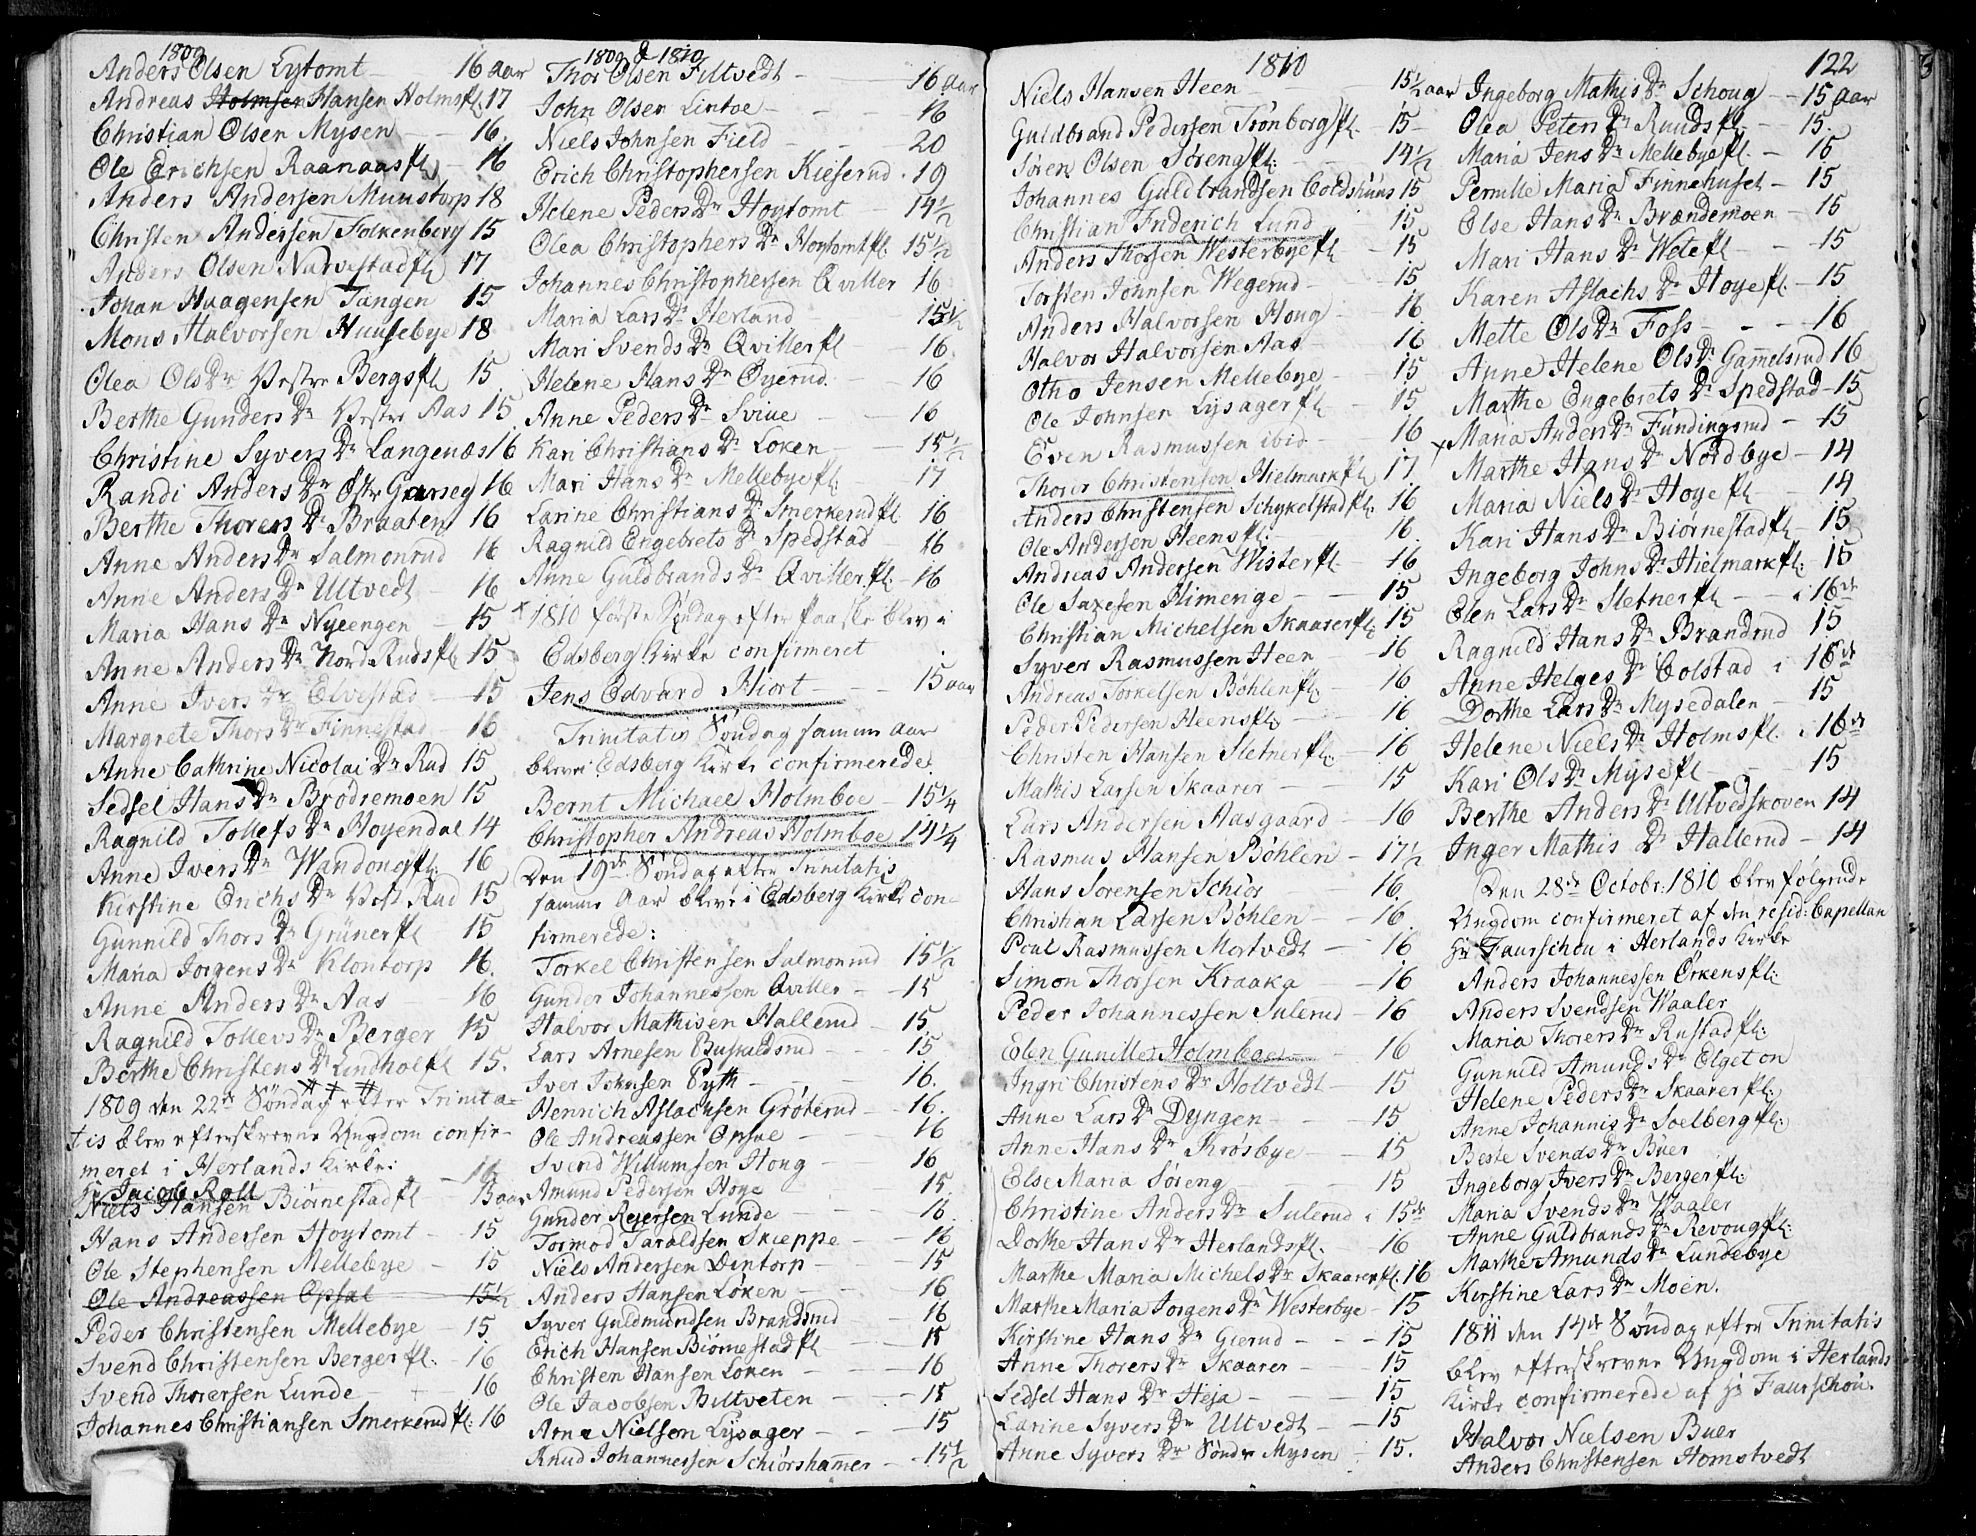 1809
Anders Olsen Lytomt 16 aar
Andreas Holmsen Hansen Holmsfl 17
Christian Olsen Mysen 16.
Ole Erichsen Raanaasfl 16
Anders Andersen Muustorp 18
Christen Andersen Folkenberg 15
Anders Olsen Narvestadfl 17
Johan Haagensen Tangen 15
Mons Halvorsen Huusebye 18
Olea Ols Dr Vestre Bergsfl 15
Berthe Gunders Dr Vestr Aas 15
Christine Syvers Dr Langenæs 16
Randi Anders Dr Østr Garseg 16
Berthe Thorers Dr Braaten 16
Anne Anders Dr Salmonrud 16
Anne Anders Dr Ultvedt 16
Maria Hans Dr Nyeengen 15
Anne Anders Dr Nord Rudsfl 15
Anne Ivers Dr Elvestad 15
Margrete Thors Dr Finnestad 16
Anne Cathrine Nicolai Dr Rud 15
Sedsel Hans Dr Brødremoen 15
Ragnild Tollefs Dr Hoyendal 14
Anne Ivers Dr Wandougfl: 16
Kirstine Erichs Dr Vest Rud 15
Gunnild Thors Dr Grünerfl 15
Maria Jorgens Dr Klontorp 16.
Anne Anders Dr Aas 16
Ragnild Tollevs Dr Berger 15
Berthe Christens Dr Lindholfl 15.
1809 den 22de Søndag efter Trinita=
tis blev efterskrevne Ungdom confir-
meret i Herlands Kirke:
Hr Jacob Roll 16
Niels Hansen Biørnestadfl 15 aar
Hans Andersen Hoytomt 15
Ole Stephensen Mellebye 15
Ole Andreassen Opsal 15½
Peder Christensen Mellebye 15
Svend Christensen Bergerfl. 16
Svend Thorersen Lunde 16
Johannes Christiansen Smerkerudfl: 16
1809 & 1810
Thor Olsen Filtvedt 16 aar
John Olsen Lintoe 16
Niels Johnsen Field 20
Erich Christophersen Kieserud. 19
Helene Peders Dr Hoytomt 14½
Olea Christophers Dr Hoytomtfl. 15½
Johannes Christophersen Qviller 16
Maria Lars Dr Herland 15½
Mari Svends Dr Qvillerfl 16.
Helene Hans Dr Øyerud 16
Anne Peders Dr Sviue 16
Kari Christians Dr Loken 15½
Mari Hans Dr Mellebyefl. 17
Larine Christians Dr Smerkerudfl 16
Ragnild Engebrets Dr Spedstad 16
Anne Guldbrands Dr Qvillerfl. 16
1810 første Søndag efter Paaske blev i
Edsberg Kirke confirmeret
Jens Edvard Hiort 15 aar
Trinitatis Søndag samme aar
blev i Edsberg Kirke confirmerede
Bernt Michael Holmboe 15¼
Christopher Andreas Holmboe 14¼
Den 19de Søndag efter Trinitatis
samme Aar bleve i Edsberg Kirke con-
firmerede:
Torkel Christensen Salmonrud 15½
Gunder Johannessen Qviller 15
Halvor Mathisen Hallerud 15
Lars Arnesen Buskaldsrud 15
Iver Johnsen Eyth 16.
Henrich Aslachsen Grøterud 16.
Ole Andreassen Opsae 16
Svend Willumsen Houg 16
Amund Pedersen Hoye 15
Gunder Reiersen Lunde 16
Tormod Taraldsen Skieppe 16
Niels Andersen Dintorp 15
Anders Hansen Løken 16
Syver Guldmundsen Brandsrud 16
Erich Hansen Biørnestadfl 15
Christen Hansen Loken 16
Ole Jacobsen Bultveten 15
Arne Nielsen Lysager 15
Knud Johannessen Schiørshammer 15½
1810
Niels Hansen Heen 15½ aar
Guldbrand Pedersen Trønborgfl. 15
Søren Olsen Sørengfl. 14½
Johannes Guldbrandsen Coldshuus 15
Christian Friderich Lund 15
Anders Thorsen Westerbyefl 15
Torsten Johnsen Wegerud 15
Anders Halvorsen Houg 16
Halvor Halvorsen Aas 16
Otho Jensen Mellebye 15
Ole Johnsen Lysagerfl 15
Even Rasmussen ibid 16
Thorer Christensen Hielmarkfl 17.
Anders Christensen Schykelstadfl. 16
Ole Andersen Heensfl. 16.
Andreas Andersen Wisterfl 16
Ole Saxesen Himerige 15
Christian Michelsen Skaarerfl: 15
Syver Rasmussen Heen 16
Andreas Torkelsen Böhlenfl. 16
Peder Pedersen Heensfl. 16
Christen Hansen Sletnerfl. 16
Mathis Larsen Skaarer 15
Lars Andersen Aasgaard 16
Rasmus Hansen Böhlen 17½
Hans Sorensen Schiør 16.
Christian Larsen Böhlen 16
Poal Rasmussen Mortvedt 16
Simon Thorsen Kraaka 16
Peder Johannessen Sulerud 16
Elen Gunille Holmboe 16
Ingri Christens Dr Holtvedt 15
Anne Lars Dr Dyngen 15
Anne Hans Dr Krosbye 15
Else Maria Søreng 15
Christine Anders Dr Sulerud i 15de
Dorthe Hans Dr Herlandsfl. 16
Marthe Maria Michels Dr Skaarerfl. 16
Marthe Maria Jorgens Dr Westerbye 15
Kirstine Hans Dr Gierud 15
Anne Thorers Dr Skaarer 15
Sedsel Hans Dr Heja 15
Larine Syvers Dr Ultvedt 15
Anne Syvers Dr Søndr Mysen 15.
122
Ingeborg Mathis Dr Schoug 15 aar
Olea Peters Dr Ruudsfl 15.
Maria Jens Dr Mellebyefl. 16
Pernille Maria Finnehuset 15
Else Hans Dr Brændemoen 15
Mari Hans Dr Wetefl 15
Karen Aslachs Dr Hoyefl. 15
Mette Ols Dr Foss 16
Anne Helene Ols Dr Gammelsrud 16
Marthe Engebrets Dr Spedstad 15
Maria Anders Dr Fundingsrud 15
Marthe Hans Dr Nordbye 14
Maria Niels Dr Hoyefl 14
Kari Hans Dr Biørnestadfl 15
Ingeborg Johns Dr Hielmarkfl: 15
Elen Lars Dr Sletnerfl i 16de
Ragnild Hans Dr Brandsrud 15
Anne Helges Dr Colstad i 16de
Dorthe Lars Dr Mysedalen 15
Helene Niels Dr Holmsfl. i 16de
Kari Ols Dr Mysefl 15
Berthe Anders Dr Ultvedskoven 14
Inger Mathis Dr Hallerud 14
Den 28de Octobr: 1810 blev følgende
Ungdom confirmeret af den resid: Capellan
Hr Faurschou i Herlands Kirke
Anders Johannessen Ørkensfl:
Anders Svendsen Waaler
Maria Thorers Dr Rustadfl:
Gunnild Amunds Dr Elgeton
Helene Peders Dr Skaarerfl:
Anne Johannis Dr Soelbergfl:
Beste Svends Dr Buer
Ingeborg Ivers Dr Bergerfl.
Maria Svends Dr Waaler
Anne Guldbrands Dr Revougfl:
Marthe Amunds Dr Lundebye
Kirstine Lars Dr Moen.
1811 den 14de Søndag efter Trinitatis
blev efterskrevne Ungdom i Herlands
Kirke confirmerede af Hr Faurschou.
Halvor Nælsen Buer
Anders Christensen Homstvedt